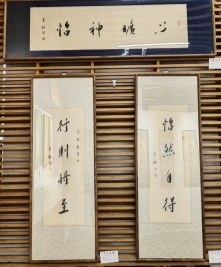 心曠神怡
怡然自得
行則將至